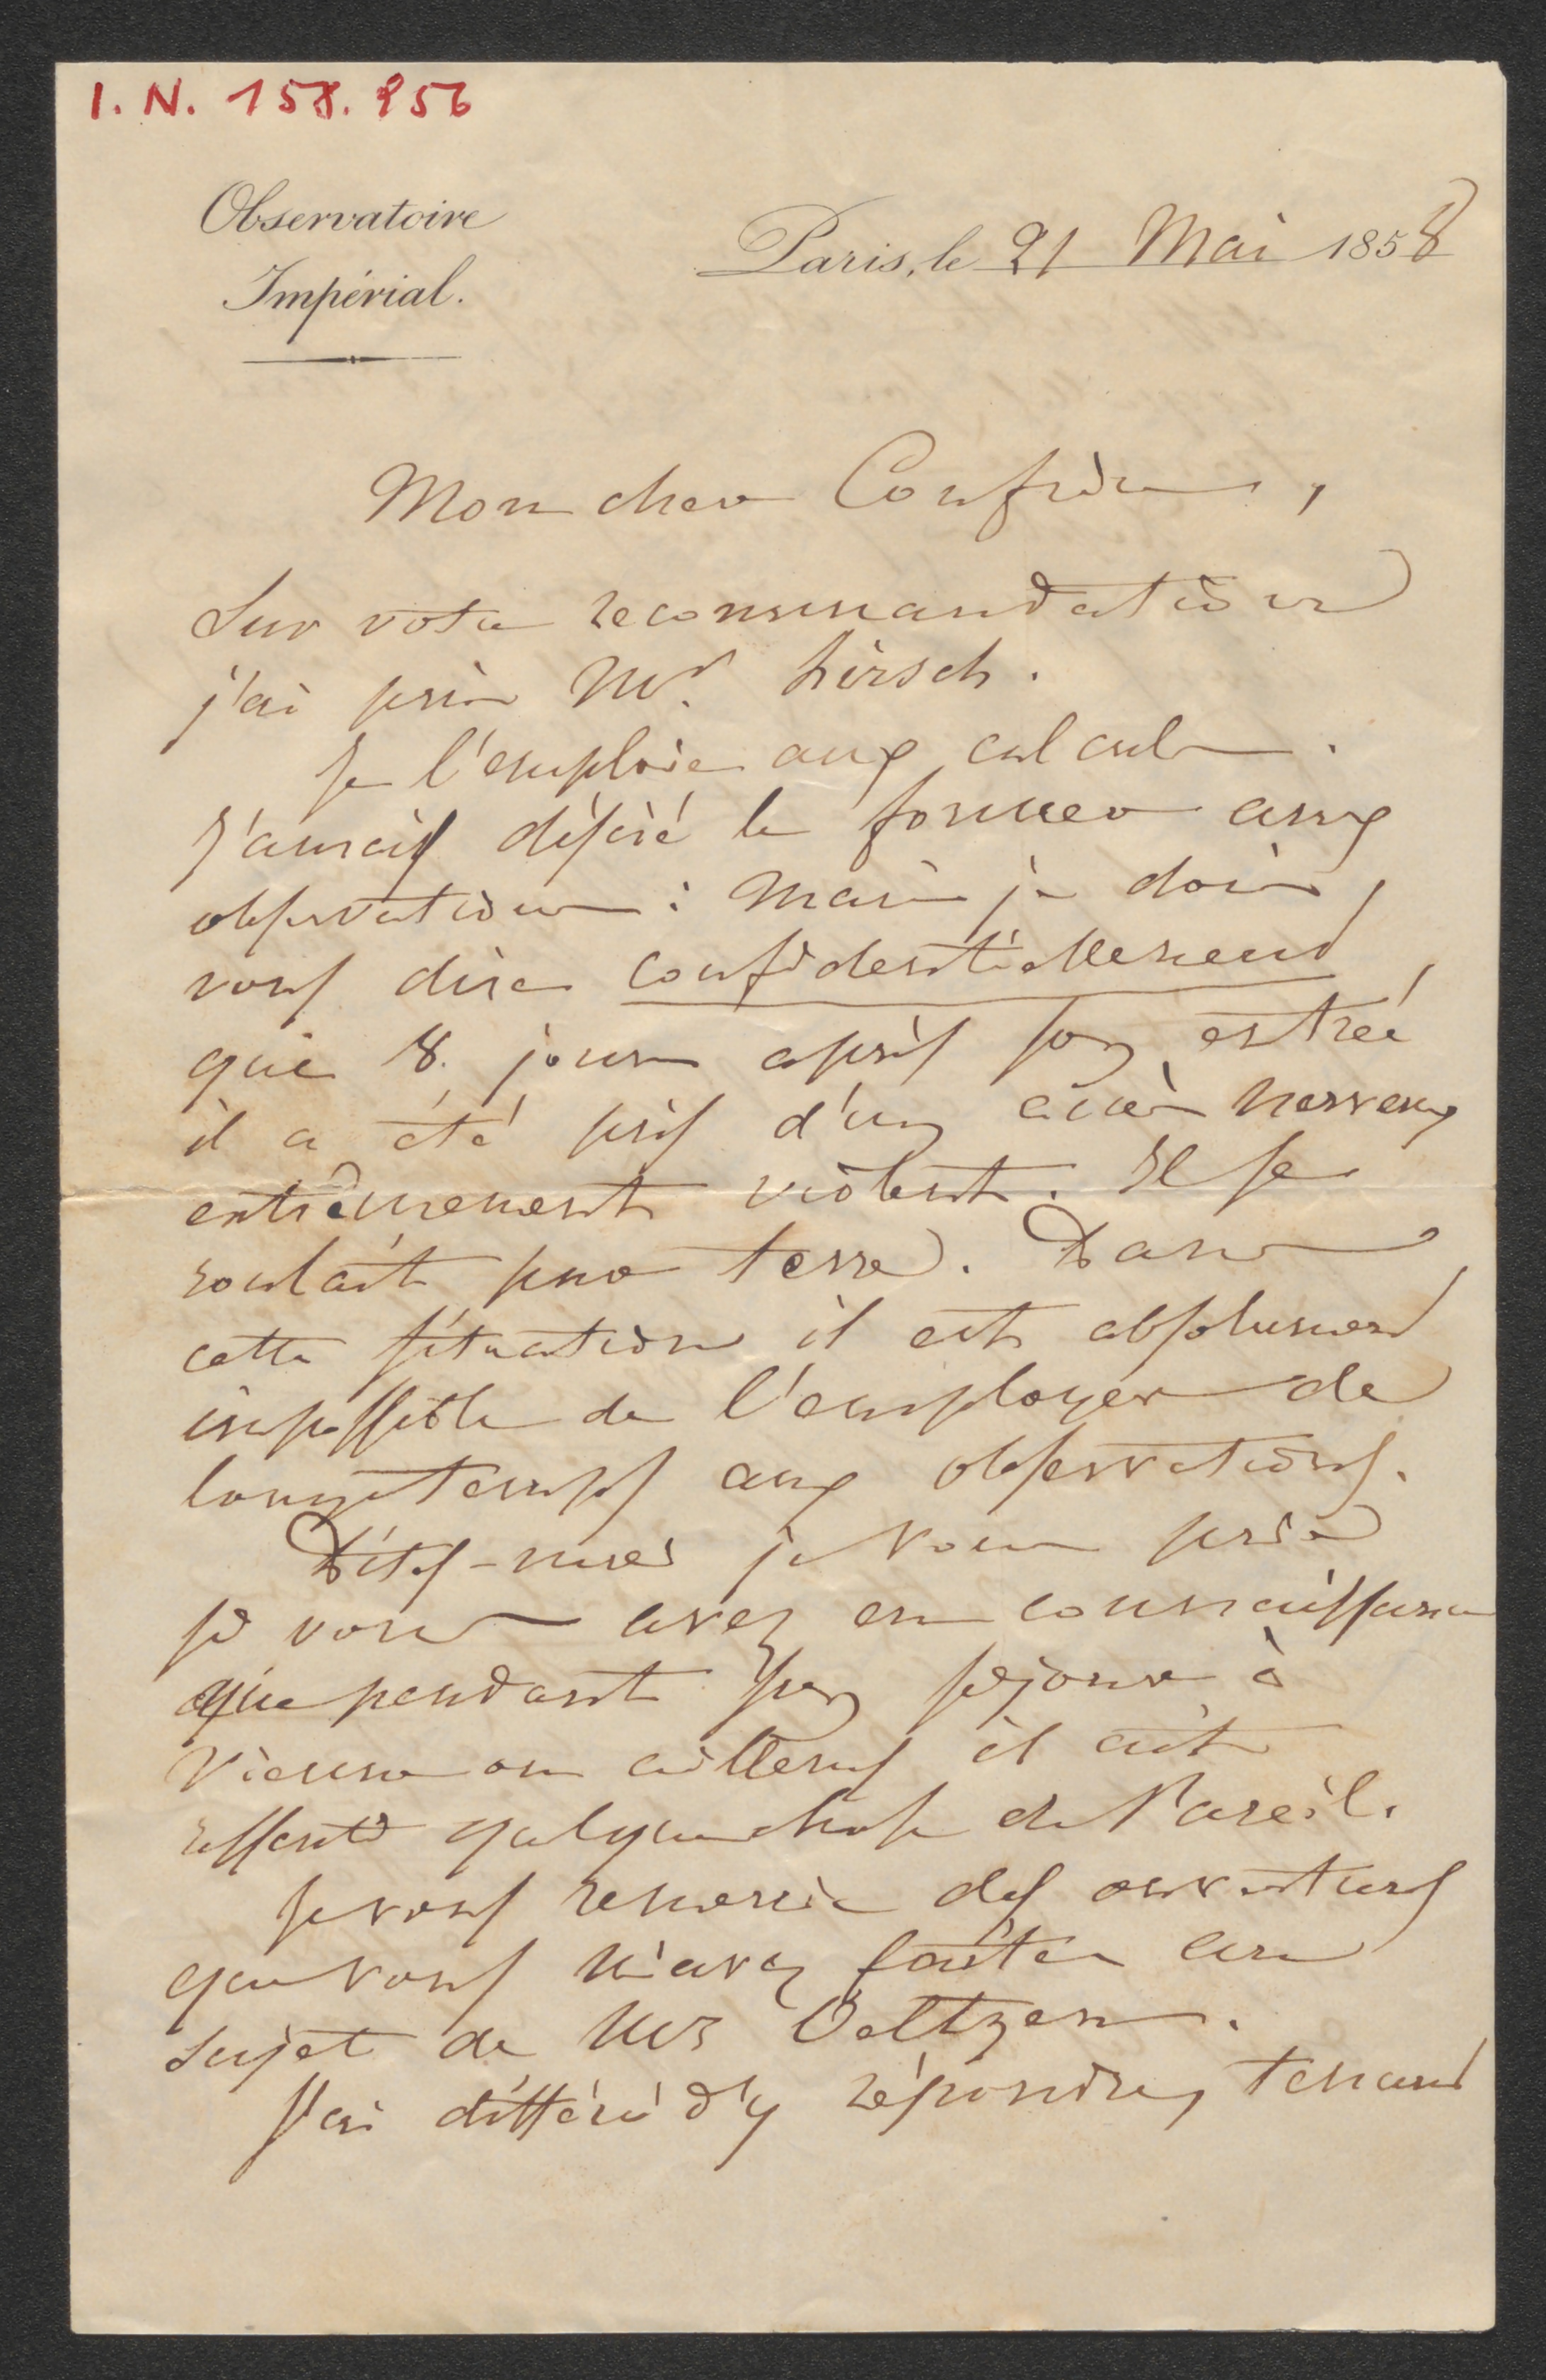 I. N. 158.956
Observatoire
Impérial.
Paris, le 21 Mai 1858
Mon cher Confrère,
Sur votre recommandation
j'ai pris Mr. hirsch.
Je l'emploie aux calculs.
J'aurais désiré le former aux
observations : Mais je dois,
vous dire confidentiellement,
que 8. jours après son entrée
il a été pris d'un accès nerveux
extrêmement violent. Il se
roulait par terre. Dans
cette situation il est absolument
impossible de l'employer de
longtemps aux observations.
Dites-moi je vous prie
si vous avez eu connaissance
que pendant son séjour à
Vienne ou ailleurs il ait
ressenti quelque chose de Pareil.
Je vous remercie des ouvertures
que vous m'avez faites au
Sujet de Mr Oeltzen.
J'ai différé d'y répondre, tenant